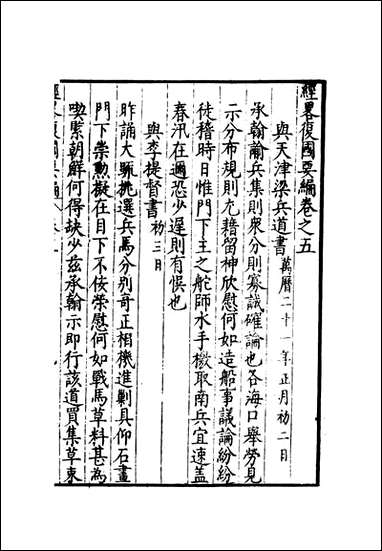 經畧復國要編卷之五
與天津梁兵道書 萬曆二十一年正月初二日
承翰諭兵集則衆分則寡誠確論也各海口舉勞見
示分布規則尤藉留神欣慰何如造船事議論紛紛
徒稽時日惟門下主之舵師水手檄取南兵宜速蓋
春汛在邇恐少遲則有悞也
與李提督書 初三日
昨誦大疏挑選兵馬分別奇正相機進剿具仰石畫
門下崇勲擬在目下不佞榮慰何如戰馬草料甚為
喫緊朝鮮何得缺少茲承翰示即行該道買集草束